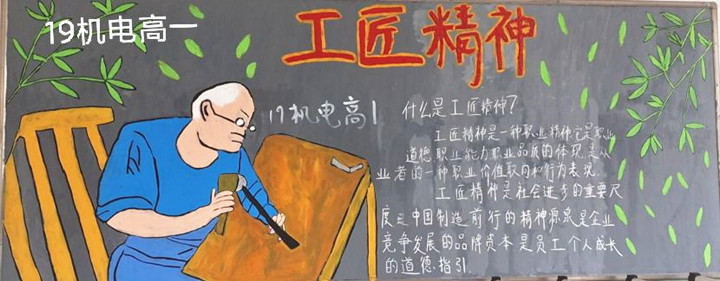 19机电高一
工匠精神
19机电高1
什么是工匠精神?
工匠精神是一种职业精神它是职业
道德职业能力职业品质的体现是从
业者的一种职业价值取向和行为表现
工匠精神是社会进步的重要尺
度是中国制造前行的精神源泉是企业
竞争发展的品牌资本是员工个人成长
的道德指引.